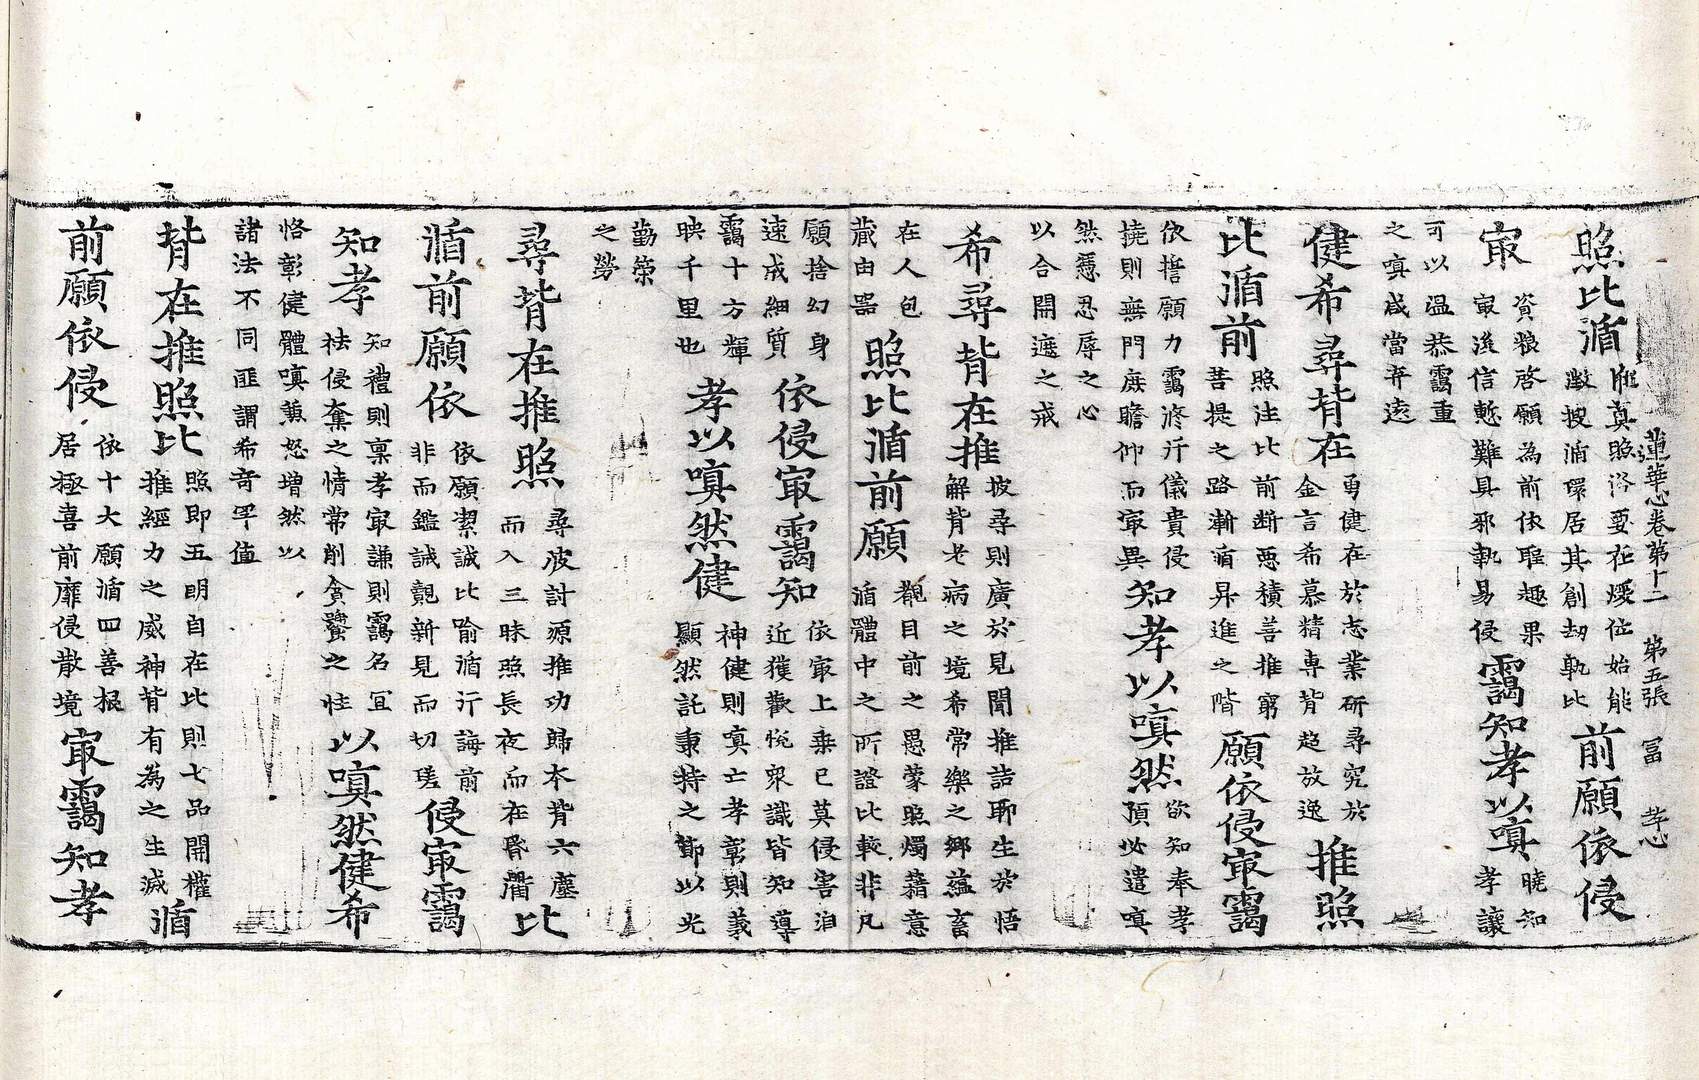 照比遁 雕真照洛要在煖位始能
敵披遁環居其創劫執比 前願依侵
蓮華心卷第十二 第五張 冨 孝心
㝡 資粮啓願為前依聖趣果
㝡淡信慙難具邪執易侵 靄知孝以嗔 曉知
孝讓
可以温恭靄重
之嗔咸當弃遠
健希尋背在 勇健在於志業研尋究於
金言希慕精專背趋放逸 推照
比遁前 照法比前断惡積善推窮
菩提之路漸遁昇進之階 願依侵㝡靄
依擔願力靄修行儀貴侵
撓則無門底瞻仰而㝡異 知孝以嗔然 欲知奉孝
預以遣嗔
然憑忍辱之心
以合開遮之戒
希尋背在推 披尋則廣於見聞推詰聊生於悟
解背老病之境希常樂之鄉蘊畜
在人包
藏由器 照比遁前願 觀目前之愚蒙照燭藉意
遁體中之所證比較非凡
願捨幻身
速成細質 依侵㝡靄知 依㝡上乗已莫侵害洎
近獲歡悅衆識皆知導
靄十方輝
映千里也 孝以嗔然健 神健則嗔亡孝彰則義
顯然託秉持之節以光
勤策
之勞
尋背在推照 尋波討源推功歸本背六塵
而入三昧照長夜而在昏衢 比
遁前願依 依願潔誠比喻遁行誨前
非而鑑誠覿新見而切瑳 侵㝡靄
知孝 知禮則禀孝㝡謙則靄名冝
祛侵奪之情常削貪饕之性 以嗔然健希
恪彰健體嗔蕉怒增然以
諸法不同匪謂希奇罕值
背在推照比 照即五明自在比則七品開權
推經力之威神背有為之生滅 遁
前願依侵 依十大願遁四善根
居極喜前靡侵散境 㝡靄知孝